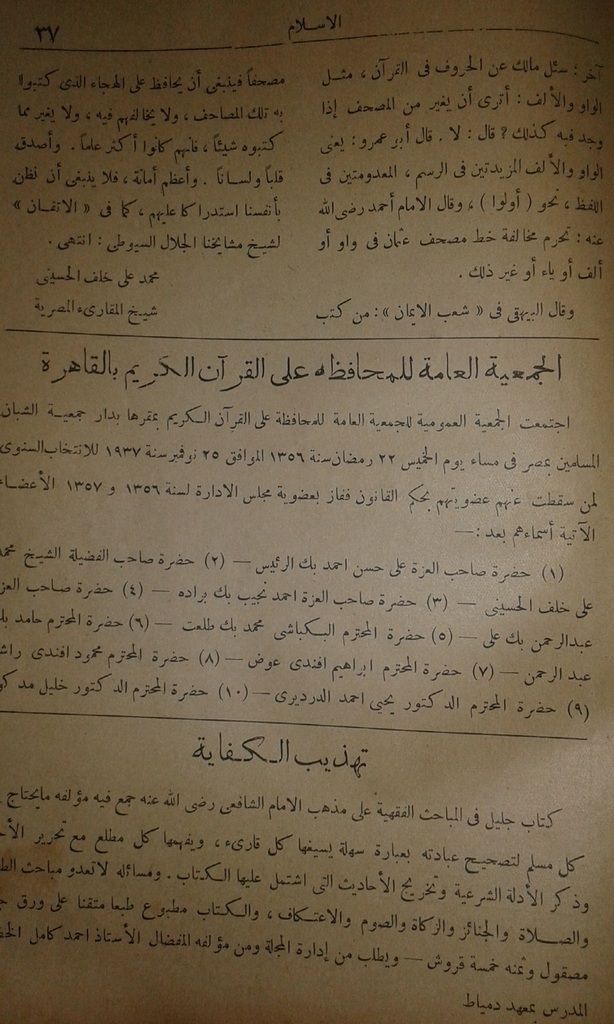 الاسلام
٣٧
آخر : سئل مالك عن الحروف فى القرآن ، مثل
الواو والألف : أترى أن يغير من المصحف إذا
وجد فيه كذلك ؟ قال : لا . قال أبو عمرو : يعنى
الواو والألف المزيدتين فى الرسم ، المعدومتين فى
اللفظ ، نحو ( أولوا ) ، وقال الامام أحمد رضى الله
عنه : تحرم مخالفة خط مصحف عثمان فى واو أو
ألف أو ياء أو غير ذلك .
وقال البيهقى فى « شعب الايمان » : من كتب
مصحفاً فينبغى أن يحافظ على الهجاء الذى كتبوا
به تلك المصاحف ، ولا يخالفهم فيه ، ولا يغير مما
كتبوه شيئاً ، فانهم كانوا أكثر علماً . وأصدق
قلباً ولساناً . وأعظم أمانة ، فلا ينبغى أن نظن
بأنفسنا استدراكا عليهم ، كما فى « الاتقان »
لشيخ مشايخنا الجلال السيوطى : انتهى .
محمد على خلف الحسينى
شيخ المقارىء المصرية
الجمعية العامة للمحافظة على القرآن الكريم بالقاهرة
اجتمعت الجمعية العمومية للجمعية العامة للمحافظة على القرآن الكريم بمقرها بدار جمعية الشبان
المسلمين بمصر فى مساء يوم الخميس ٢٢ رمضان سنة ١٣٥٦ الموافق ٢٥ نوفبر سنة ١٩٣٧ للانتخاب السنوى
لمن سقطت عنهم عضويتهم بحكم القانون ففاز بعضوية مجلس الادارة لسنة ١٣٥٦ و ١٣٥٧ الأعضاء
الآتية أسماءهم بعد : —
(١) حضرة صاحب العزة على حسن احمد بك الرئيس — (٢) حضرة صاحب الفضيلة الشيخ محمد
على خلف الحسينى — (٣) حضرة صاحب العزة احمد نجيب بك براده — (٤) حضرة صاحب العز
عبدالرحمن بك على — (٥) حضرة المحترم البكباشى محمد بك طلعت — (٦) حضرة المحترم حامد بك
عبد الرحمن — (٧) حضرة المحترم ابراهيم افندى عوض — (٨) حضرة المحترم محمود افندى راش
(٩) حضرة المحترم الدكتور يحيى احمد الدرديرى — (١٠) حضرة المحترم الدكتور خليل مدكو
تهذيب الكفاية
كتاب جليل فى المباحث الفقهية على مذهب الامام الشافعى رضى الله عنه جمع فيه مؤلفه مايحتاج
كل مسلم لتصحيح عبادته بعبارة سهلة يسيغها كل قارىء ، ويفهمها كل مطلع مع تحرير الأ
وذكر الأدلة الشرعية وتخريج الأحاديث التى اشتمل عليها الكتاب . ومسائله لاتعدو مباحث الط
والصلاة والجنائز والزكاة والصوم والاعتكاف ، والكتاب مطبوع طبعا متقنا على ورق
مصقول وثمنه خمسة قروش — ويطلب من إدارة المجلة ومن مؤلفه المفضال الأستاذ احمد كامل
المدرس بمعهد دمياط